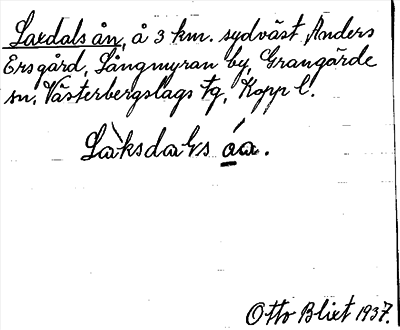 Laxdals ån, å 3 km. sydväst Anders
Ersgård, Långmyran by, Grangärde
sn, Västerbergslags tg, Kopp l.
Làksdaɫs áa.
Otto Blixt 1937.